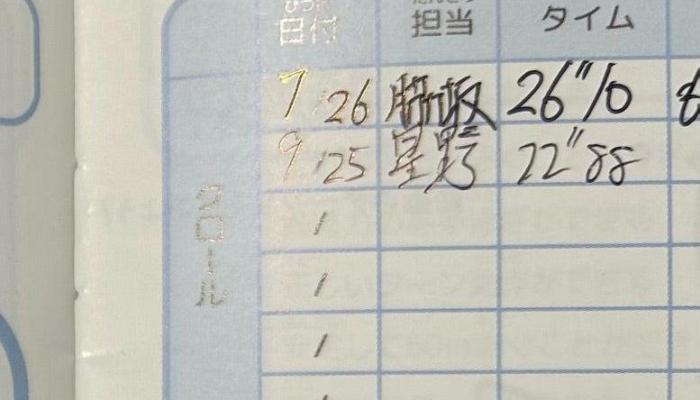 日付 担当 タイム
クロール
7/26 勝坂 26"10
9/25 星野 22"88
/
/
/